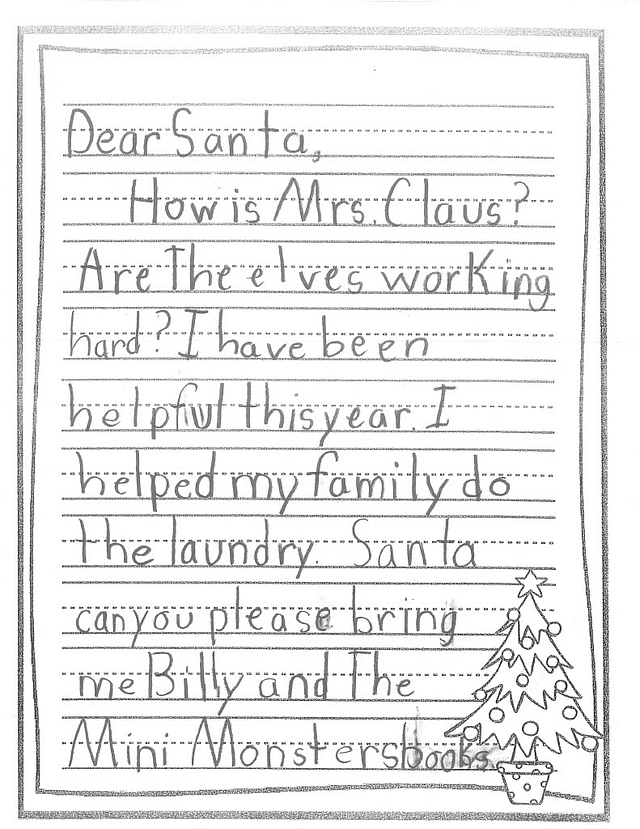 Dear Santa,
How is Mrs. Claus?
Are The elves working
hard? I have been
helpful this year. I
helped my family do
the laundry. Santa
can you please bring
me Billy and The
Mini Monsters books.